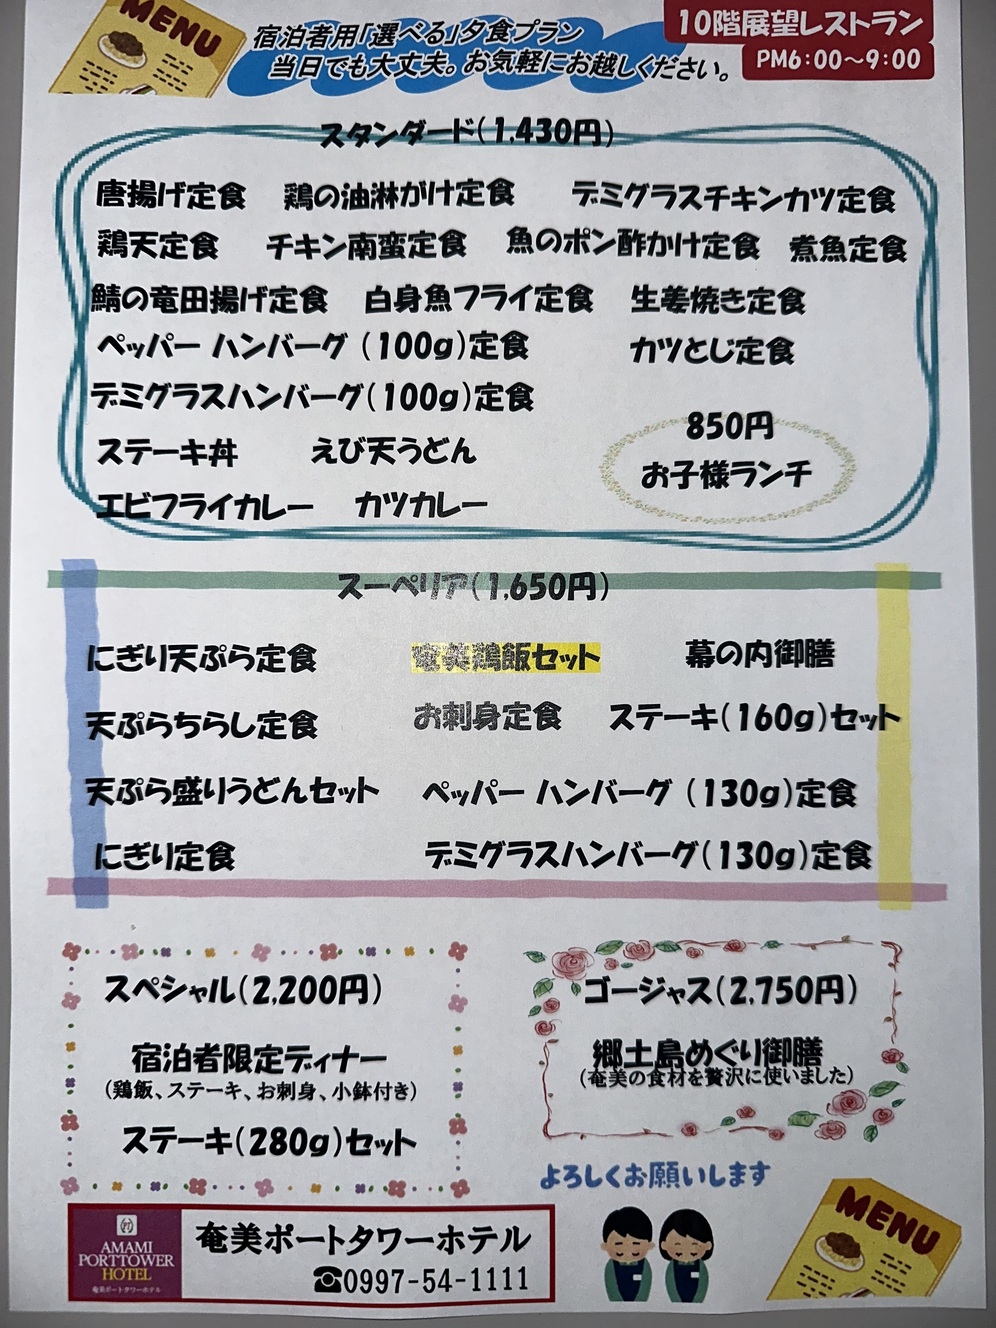 MENU
宿泊者用「選べる」夕食プラン
当日でも大丈夫。お気軽にお越しください。
10階展望レストラン
PM6:00～9:00
スタンダード(1,430円)
唐揚げ定食 鶏の油淋がけ定食 デミグラスチキンカツ定食
鶏天定食 チキン南蛮定食 魚のポン酢かけ定食 煮魚定食
鯖の竜田揚げ定食 白身魚フライ定食 生姜焼き定食
ペッパー ハンバーグ (100g)定食 カツとじ定食
デミグラスハンバーグ(100g)定食
850円
ステーキ丼 えび天うどん
お子様ランチ
エビフライカレー カツカレー
スーペリア(1,650円)
にぎり天ぷら定食 奄美鶏飯セット 幕の内御膳
天ぷらちらし定食 お刺身定食 ステーキ(160g)セット
天ぷら盛りうどんセット ペッパー ハンバーグ (130g)定食
にぎり定食 デミグラスハンバーグ(130g)定食
スペシャル(2,200円)
宿泊者限定ディナー
(鶏飯、ステーキ、お刺身、小鉢付き)
ステーキ(280g)セット
ゴージャス(2,750円)
郷土島めぐり御膳
(奄美の食材を贅沢に使いました)
よろしくお願いします
AMAMI
PORTTOWER
HOTEL
奄美ポートタワーホテル
奄美ポートタワーホテル
☎0997-54-1111
MENU